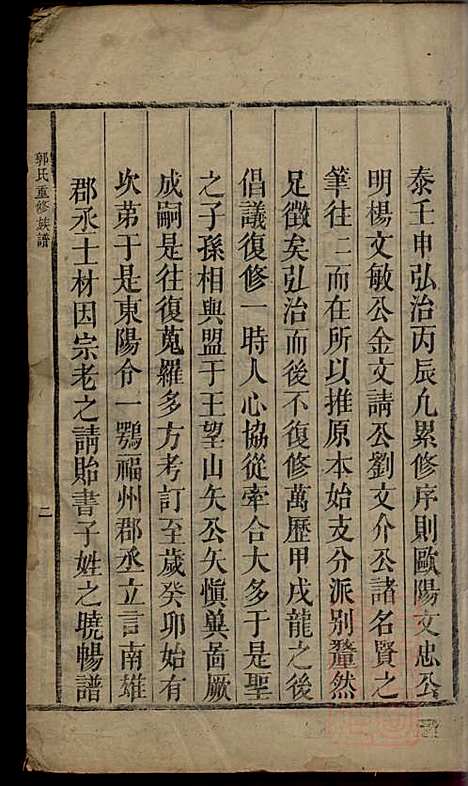 泰壬申弘治丙辰九累修序則歐陽文忠公
明楊文敏公金文請公劉文介公諸名賢之
筆往二而在所以推原本始支分派別釐然
足徵矣弘治而後不復修萬歷甲戌龍之後
倡議復修一時人心協從牽合大多于是聖
之子孫相與盟于王望山矢公矢慎奠啚厥
成嗣是往復蒐羅多方考訂至歲癸卯始有
次苐于是東陽令一鶚福州郡丞立言南雄
郡丞士材因宗老之請貽書子姓之曉暢譜
郭氏重修族譜
二